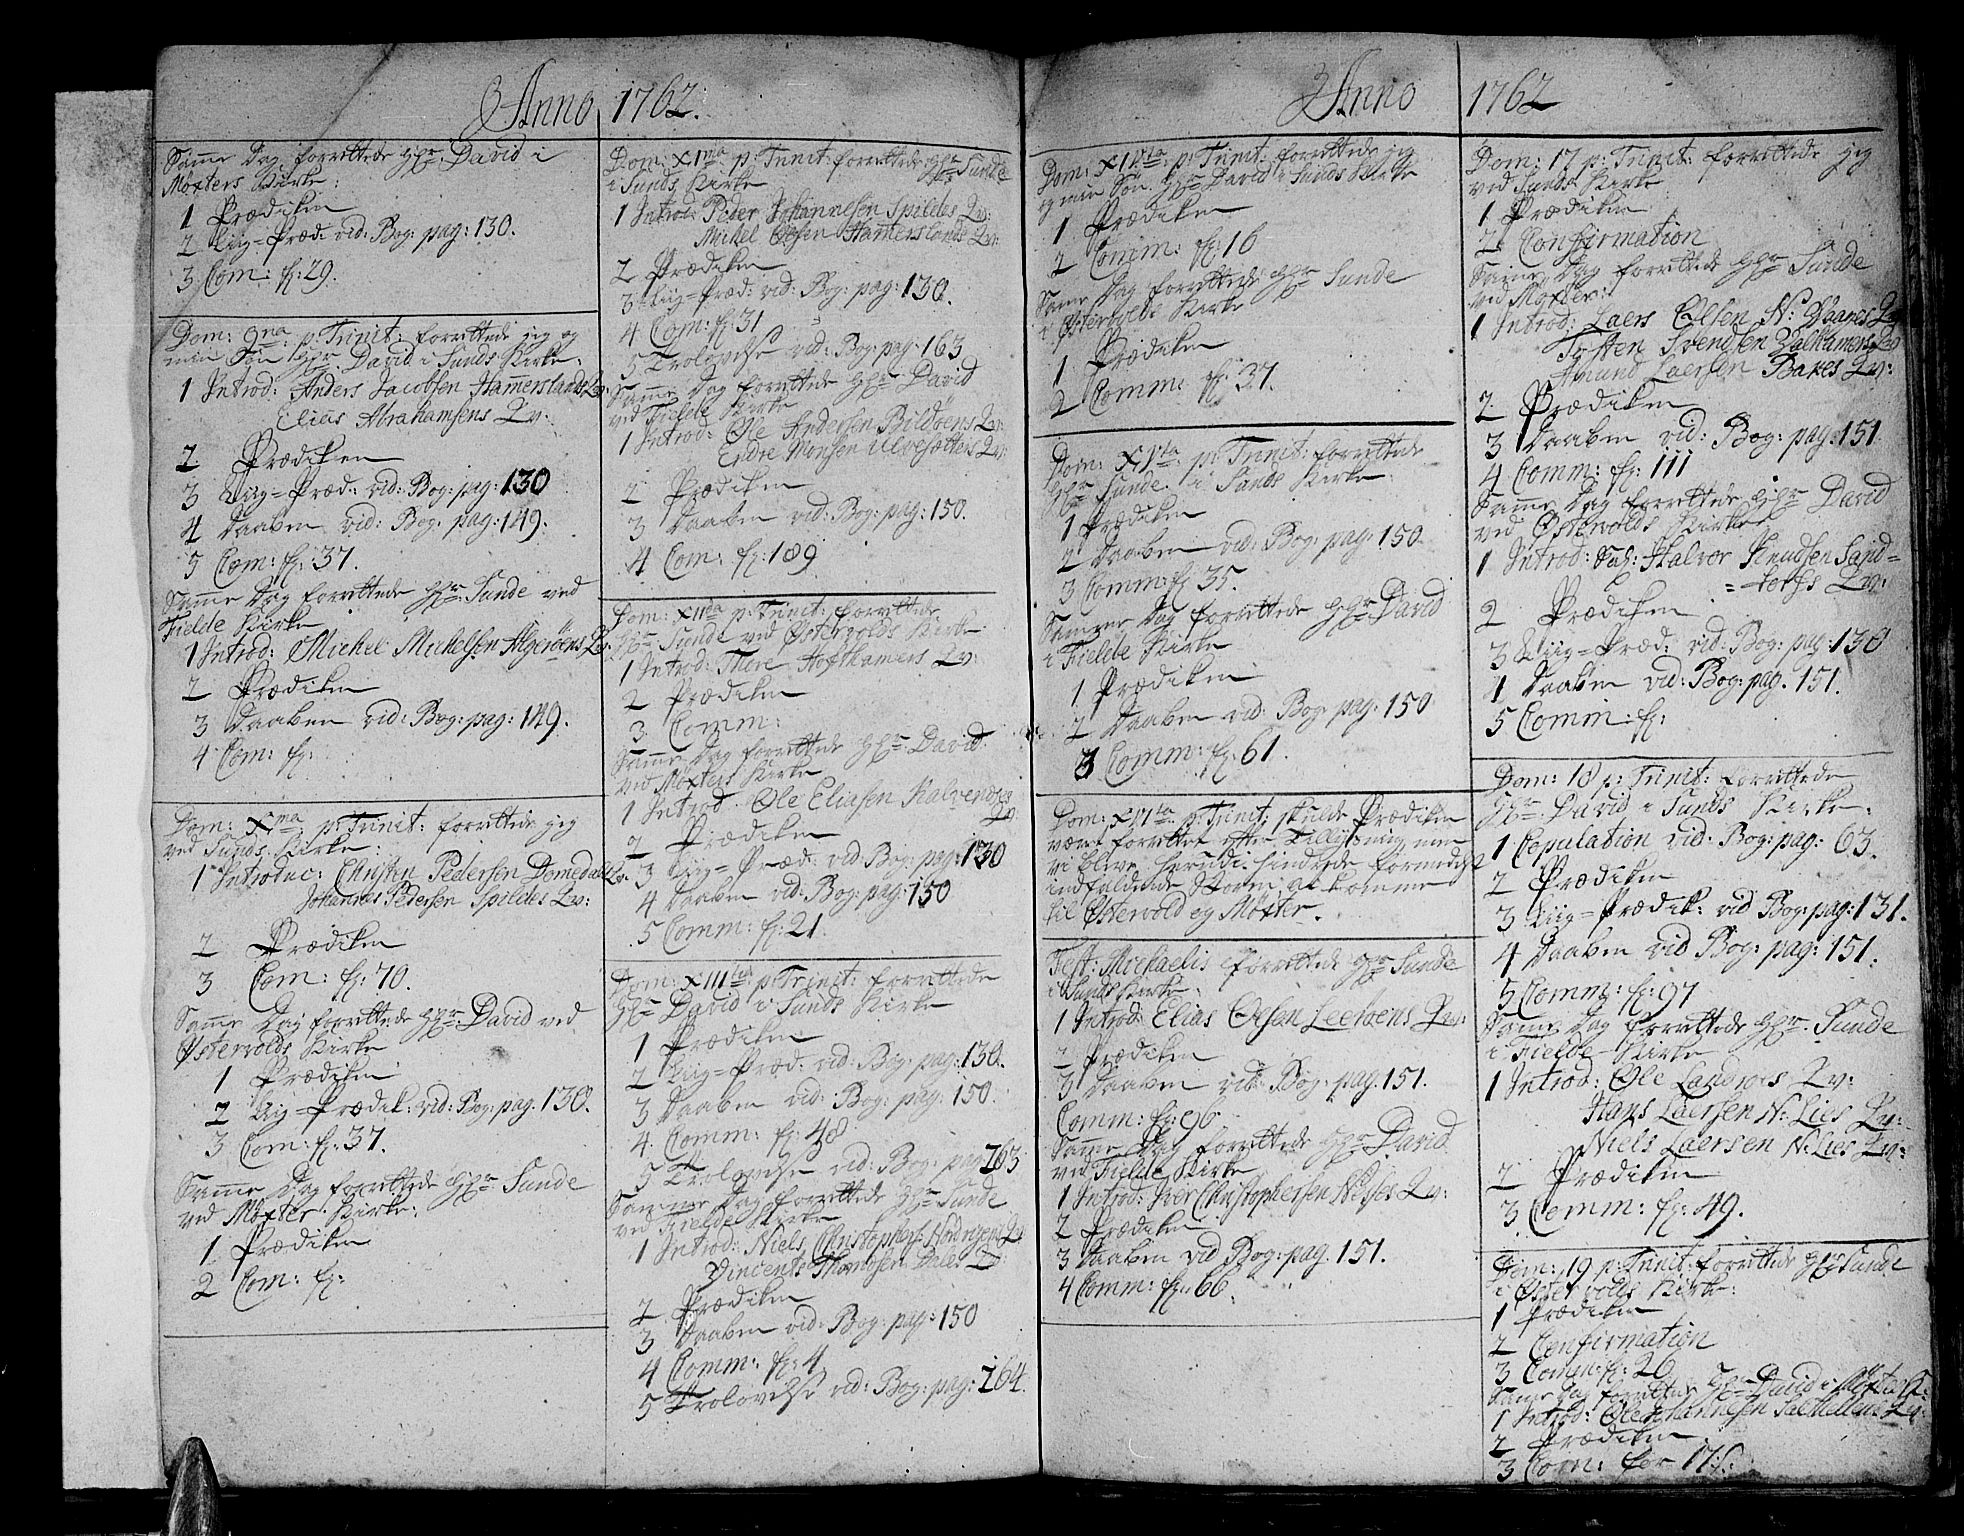 Anno 1762.
Samme Dag forrettede Hr. David i
Møxters Kirke:
1 Prædiken
2 Liig=Præd: vid: Bog: pag: 130.
3 Com: fr: 29.
Dom: 9na p: Trinit: forrettede jeg og
min Søn Hr. David i Sunds Kirke:
1 Introd: Anders Jacobsen Hamerslands Qv:
Elias Abrahamsens Qv:
2 Prædiken
3 Liig=Præd: vid: Bog: pag: 130
4 Daaben vid: Bog: pag: 149.
5 Com: fr: 37.
Samme Dag forrettede Hr. Sunde ved
Fielde Kirke
1 Introd: Michel Michelsen Algerøens Qv:
2 Prædiken
3 Daaben vid: Bog: pag: 149.
4 Com: fr:
Dom: Xma p: Trinit: forrettede jeg
ved Sunds Kirke:
1 Introduc: Christen Pedersen Domedals Qv:
Johannes Pedersen Spildes Qv:
2 Prædiken
3 Com: fr: 70.
Samme Dag forrettede Hr. David ved
Østervolds Kirke
1 Prædiken
2 Liig=Prædik: vid: Bog: pag. 130.
3 Com: fr: 37.
Samme Dag forrettede Hr. Sunde
ved Møxter Kirke:
1 Prædiken
2 Com: fr:
Dom: XIma p: Trinit: forrettede Hr. Sunde
i Sunds Kirke
1 Introd: Peder Johannesen Spildes Qv:
Michel Olsen Hamerslands Qv:
2 Prædiken
3 Liig=Præd: vid: Bog: pag: 130.
4 Com: fr: 31
5 Trolovelse vid: Bog: pag: 163
Samme Dag forrettede Hr. David
ved Fielde Kirke
1 Introd: Ole Andersen Bildøens Qv:
Endre Monsen Ulvesætters Qv:
2 Prædiken
3 Daaben vid: Bog: pag: 150.
4 Com: fr: 189
Dom: XIIda p: Trinit: forrettede
Hr. Sunde ved Østervolds Kirke
1 Introd: Thore Hofthamers Qv:
2 Prædiken
3 Comm:
Samme Dag forrettede Hr. David
ved Møxters Kirke
1 Introd. Ole Eliasen Kalvenæs
Qv:
2 Prædiken
3 Liig=Præd: vid Bog: pag: 130
4 Daaben vid: Bog: pag: 150
5 Comm: fr: 21.
Dom: XIIItia p: Trinit: forrettede
Hr. David i Sunds Kirke
1 Prædiken
2 Liig=Præd: vid: Bog: pag: 130.
3 Daaben vid: Bog: pag: 150.
4 Comm: fr: 48
5 Trolovelse vid: Bog: pag 163
Samme Dag forrettede Hr. Sunde
ved Fielde Kirke
1 Introd: Niels Christophers: Qv:
Vincents Thomosen Dales Qv:
2 Prædiken
3 Daaben vid: Bog: pag: 150
4 Comm: fr: 4
5 Trolovelse vid: Bog: pag: 164.
Anno 1762
Dom: XIVta p: Trinit: forrettede jeg
og min Søn Hr. David i Sunds Kirke
1 Prædiken
2 Comm: fr: 16
Samme Dag forrettede Hr. Sunde
i Østervolds Kirke
1 Prædiken
2 Comm: fr: 37.
Dom: XVta p: Trinit: forrettede
Hr. Sunde i Sunds Kirke
1 Prædiken
2 Daaben vid: Bog: pag: 150.
3 Comm: fr: 35.
Samme Dag forrettede Hr. David
i Fielde Kirke
1 Prædiken
2 Daaben vid: Bog: pag: 150
3 Comm: fr: 61.
Dom: XVIta p: Trinit: skulde Prædiken
været forrettet efter Tillysning, men
vi bleve hindrede formedelst
indfaldende Storm at komme
til Østervold og Møxter.
Fest: Michaelis forrettede Hr. Sunde
i Sunds Kirke
1 Introd: Elias Olsen Leerøens Qv:
2 Prædiken
3 Daaben vid: Bog: pag: 151.
Comm: fr: 96
Samme Dag forrettede Hr. David
ved Fielde Kirke
1 Introd: Iver Christophersen Neses Qv:
2 Prædiken
3 Daaben vid Bog: pag: 151.
4 Comm: fr: 66.
Dom: 17 p: Trinit: forrettede jeg
ved Sunds Kirke
1 Prædiken
2 Confirmation
Samme Dag forrettede Hr. Sunde
ved Møxter:
1 Introd: Laers Olsen N: Qv:
Tosten Svendsen Dalhamers Qv
Amund Laersen Bakes Qv:
2 Prædiken
3 Daaben vid: Bog: pag: 151
4 Comm: fr: 111
Samme Dag forrettede Hr. David
ved Østervolds Kirke
1 Introd: Halvor Knudsen Sand=
=torfs Qv:
2 Prædiken
3 Liig=Præd: vid: Bog: pag 130
4 Daaben vid: Bog: pag. 151.
5 Comm: fr:
Dom: 18 p: Trinit: forrettede
Hr. David i Sunds Kirke.
1 Copulation vid: Bog: pag: 63.
2 Prædiken
3 Liig=Prædik: vid Bog: pag: 131.
4 Daaben vid Bog: pag: 151.
5 Comm: fr: 97
Samme Dag forrettede Hr. Sunde
i Fielde Kirke
1 Introd: Ole Landroes Qv:
Hans Laersen N: Lies Qv:
Niels Laersen N: Lies Qv:
2 Prædiken
3 Comm: fr: 49.
Dom: 19 p: Trinit: forrettede Hr. Sunde
i Østervolds Kirke:
1 Prædiken
2 Confirmation
3 Comm: fr: 26
Samme Dag forrettede Hr. David i Møxter K:
1 Introd: Ole Johannesen Qv:
2 Prædiken
3 Com: for 17.